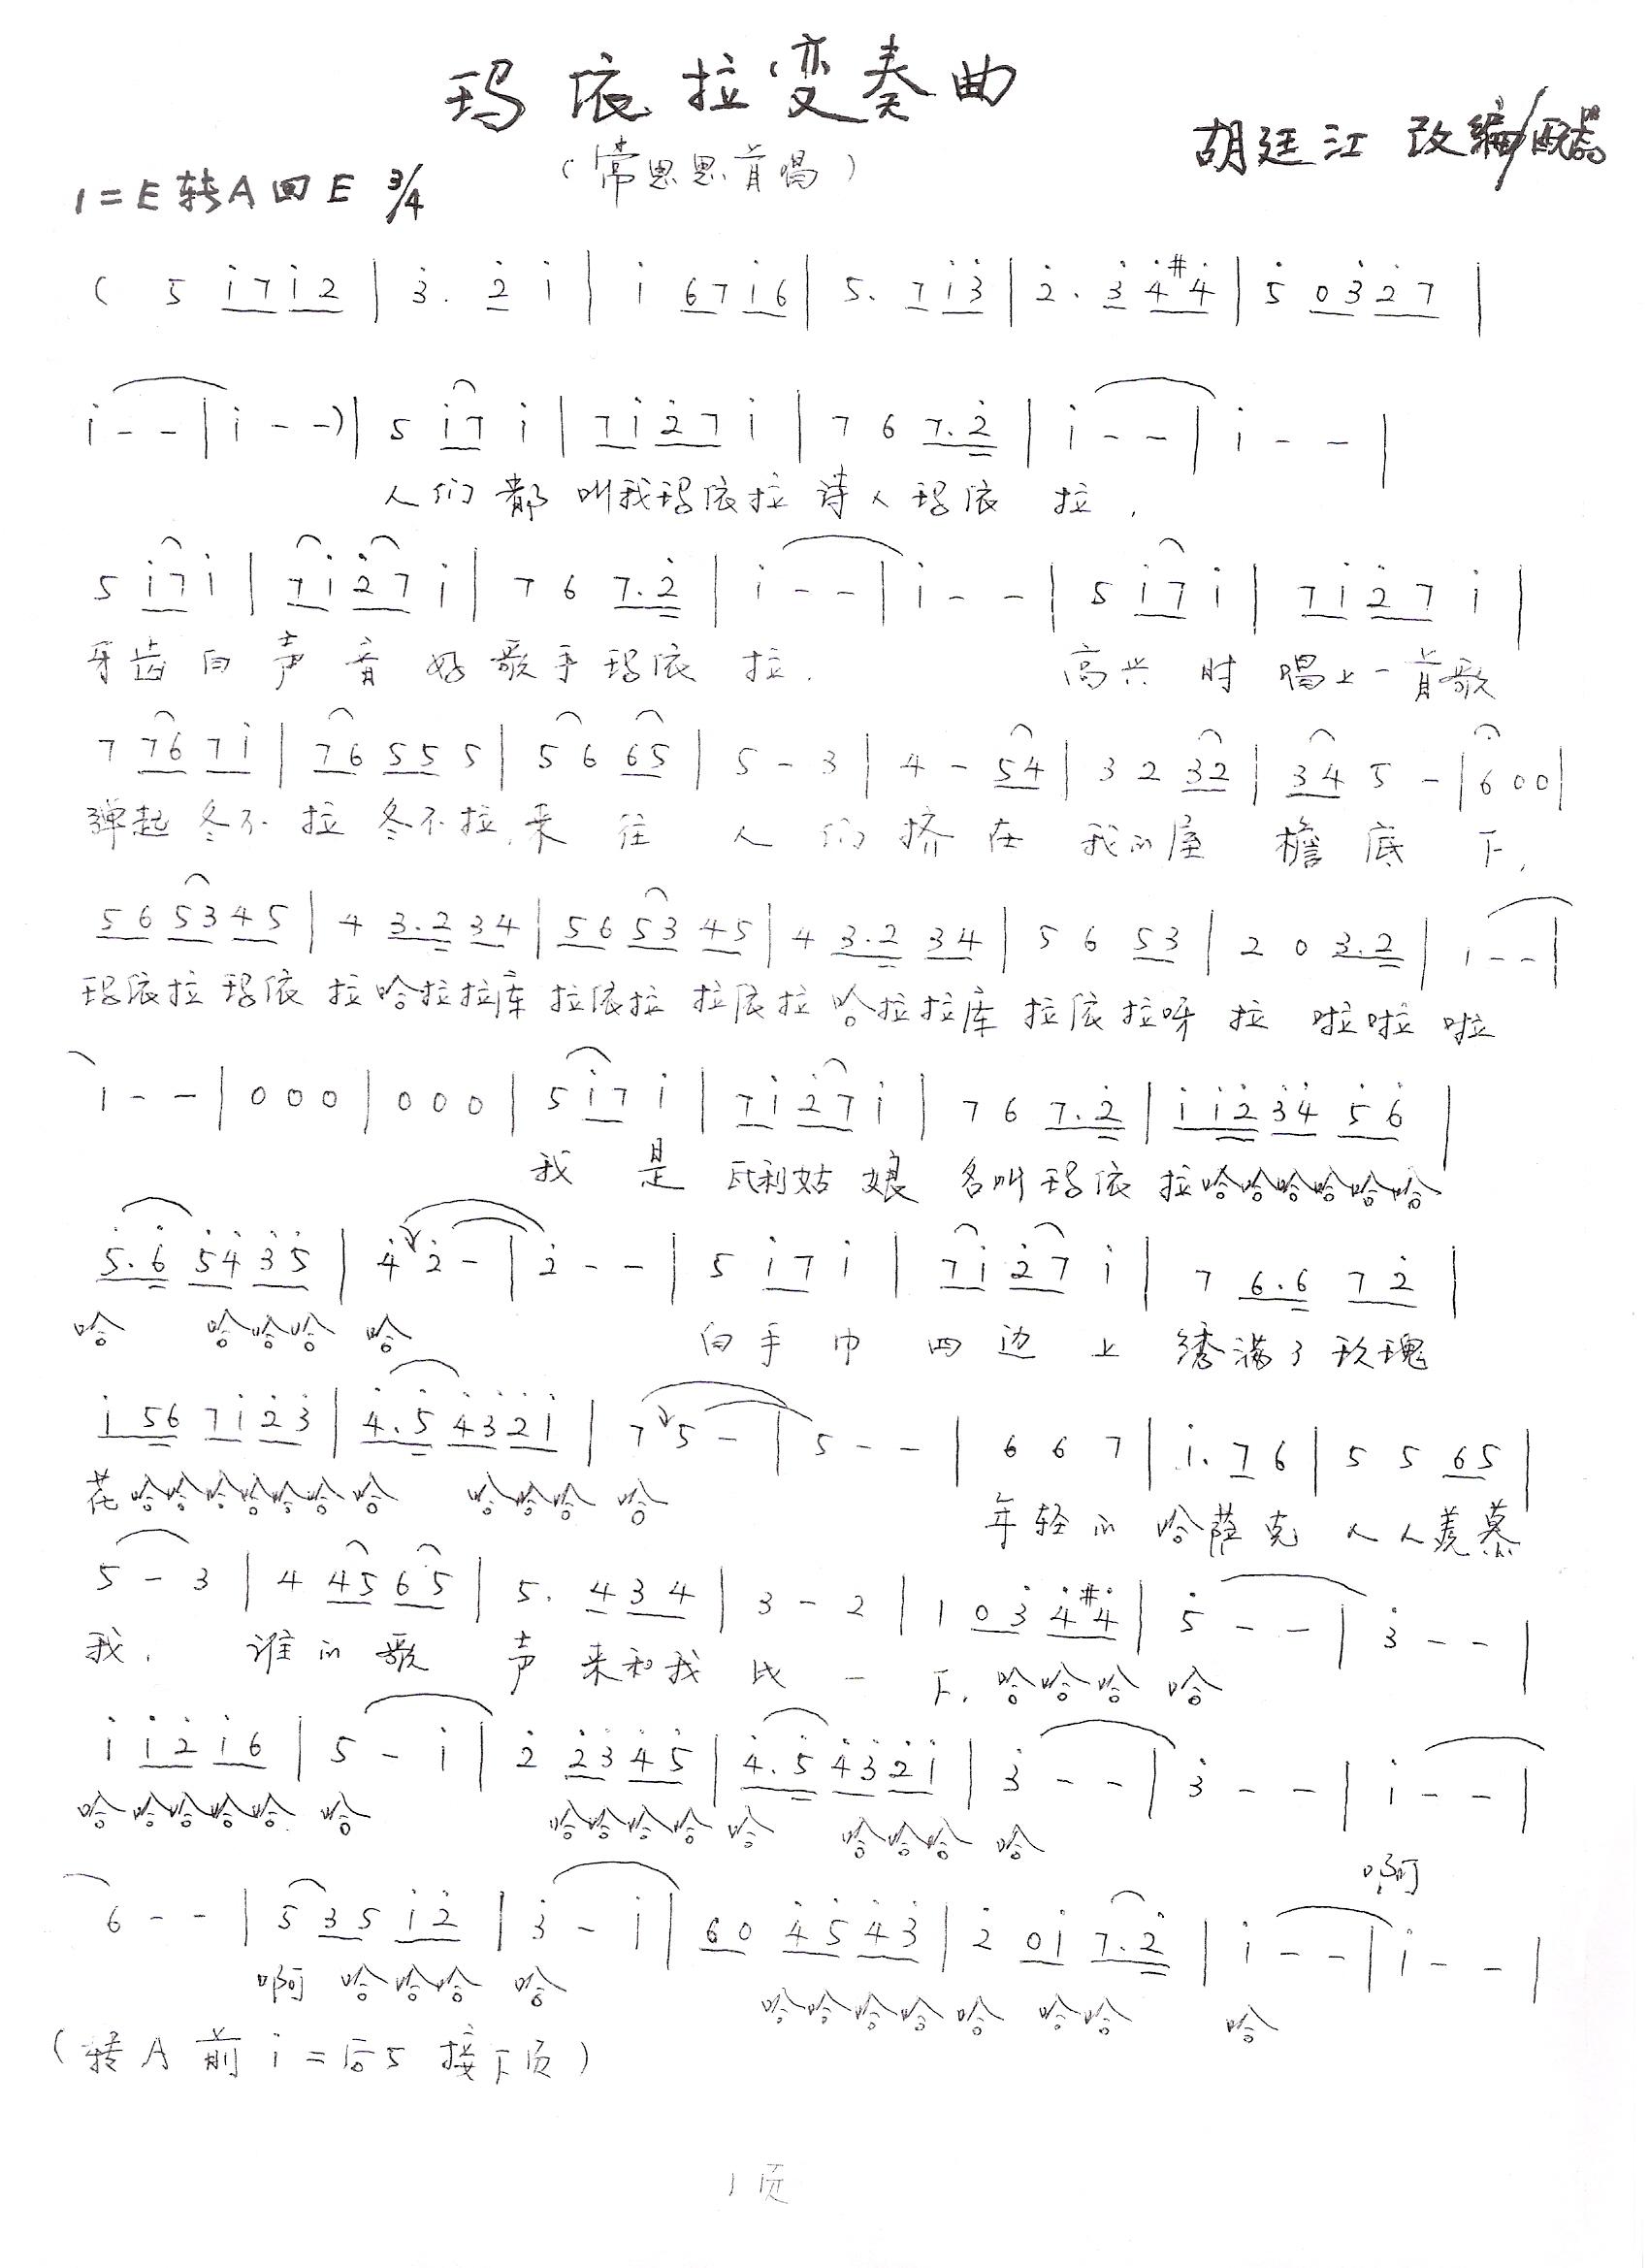 玛依拉变奏曲
(常思思首唱)
胡廷江 改编/配器
1=E转A回E 3/4
( 5 i̇7i̇2̇ | 3̇. 2̇ i̇ | i̇ 67i̇6 | 5. 7i̇3̇ | 2̇. 3̇4̇#4̇ | 5̇ 03̇2̇7 |
i̇ - - | i̇ - -) | 5 i̇7 i̇ | 7i̇2̇7 i̇ | 7 6 7.2̇ | i̇ - - | i̇ - - |
人们都叫我玛依拉诗人玛依拉,
5 i̇7 i̇ | 7i̇2̇7 i̇ | 7 6 7.2̇ | i̇ - - | i̇ - - | 5 i̇7 i̇ | 7i̇2̇7 i̇ |
牙齿白声音好歌手玛依拉. 高兴时唱上一首歌
7 76 7i̇ | 76 55 5 | 5 6 65 | 5 - 3 | 4 - 54 | 3 2 32 | 34 5 - | 6 0 0 |
弹起冬不拉冬不拉,来往人们挤在我的屋檐底下,
56 53 45 | 4 3.2 34 | 56 53 45 | 4 3.2 34 | 5 6 53 | 2 0 3.2 | 1 - - |
玛依拉玛依拉哈拉拉库拉依拉拉依拉哈拉拉库拉依拉呀拉啦啦啦
1 - - | 0 0 0 | 0 0 0 | 5 i̇7 i̇ | 7i̇2̇7 i̇ | 7 6 7.2̇ | i̇i̇2̇ 3̇4̇ 5̇6̇ |
我是瓦利姑娘名叫玛依拉哈哈哈哈哈哈
5̇.6̇ 5̇4̇ 3̇5̇ | 4̇ 2̇ - | 2̇ - - | 5 i̇7 i̇ | 7i̇2̇7 i̇ | 7 6.6 72̇ |
哈 哈哈哈 哈 白手巾四边上绣满了玫瑰
i̇56 7i̇ 2̇3̇ | 4̇.5̇ 4̇3̇ 2̇i̇ | 7 5 - | 5 - - | 6 6 7 | i̇. 7 6 | 5 5 65 |
花哈哈哈哈哈哈哈 哈哈哈 哈 年轻的哈萨克人人羡慕
5 - 3 | 4 45 65 | 5. 434 | 3 - 2 | 1 03̇ 4̇#4̇ | 5̇ - - | 3̇ - - |
我. 谁的歌声来和我比一下.哈哈哈 哈
i̇ i̇2̇ i̇6 | 5 - i̇ | 2̇ 2̇3̇ 4̇5̇ | 4̇.5̇ 4̇3̇ 2̇i̇ | 3̇ - - | 3̇ - - | i̇ - - |
哈哈哈哈哈 哈 哈哈哈哈 哈 哈哈哈 哈 啊
6 - - | 5 35 i̇2̇ | 3̇ - i̇ | 60 4̇5̇ 4̇3̇ | 2̇ 0i̇ 7.2̇ | i̇ - - | i̇ - - |
啊 哈哈哈 哈 哈哈哈哈 哈 哈哈 哈
(转A前i̇=后5 接下页)
1页